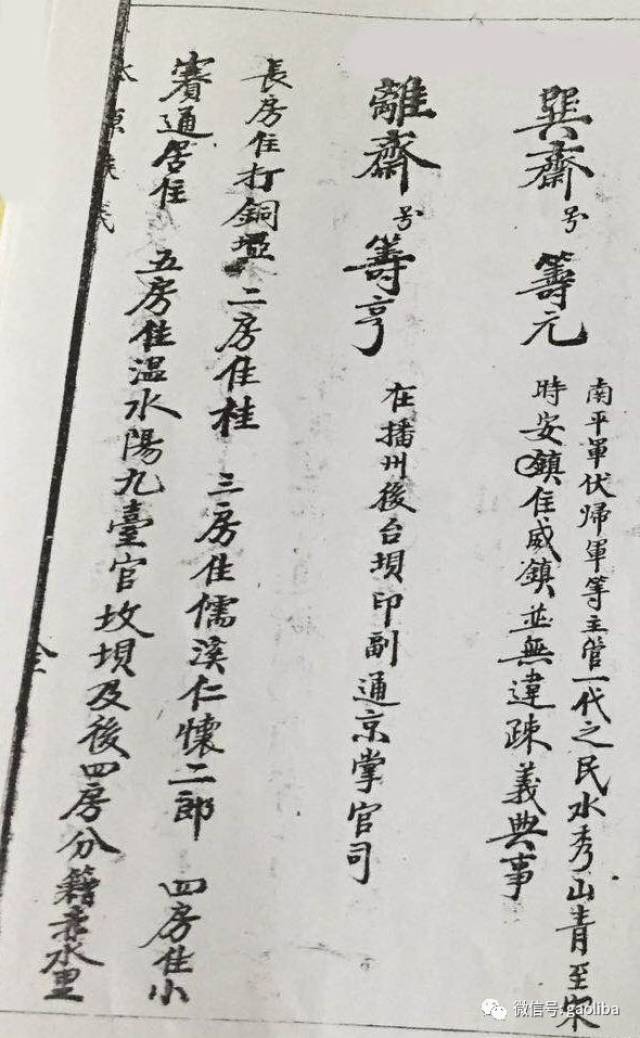 巽齋号籌元
南平軍伏歸軍等主管一代之民水秀山青至宋
時安鎮住威鎮並無違疎義典事
離齋号籌亨
在播州後台垻印副通京掌官司
長房住打銅壋二房住桂 三房住儒溪仁懷二郎 四房住小
賽通居住 五房住温水陽九臺官坟垻及後四房分籍赤水里
微信号: gaoliba